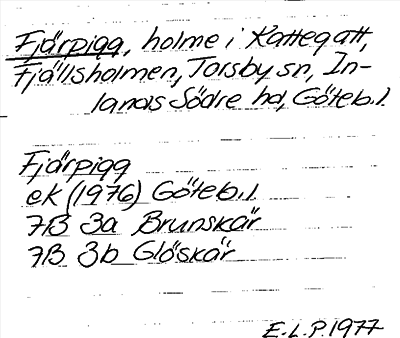 Fjärpigg, holme i Kattegatt,
Fjällsholmen, Torsby sn, In-
lands Södre hd, Göteb. l.
Fjärpigg
ek (1976) Göteb. l.
7B 3a Brunskär
7B 3b Glöskär
E.L.P. 1977